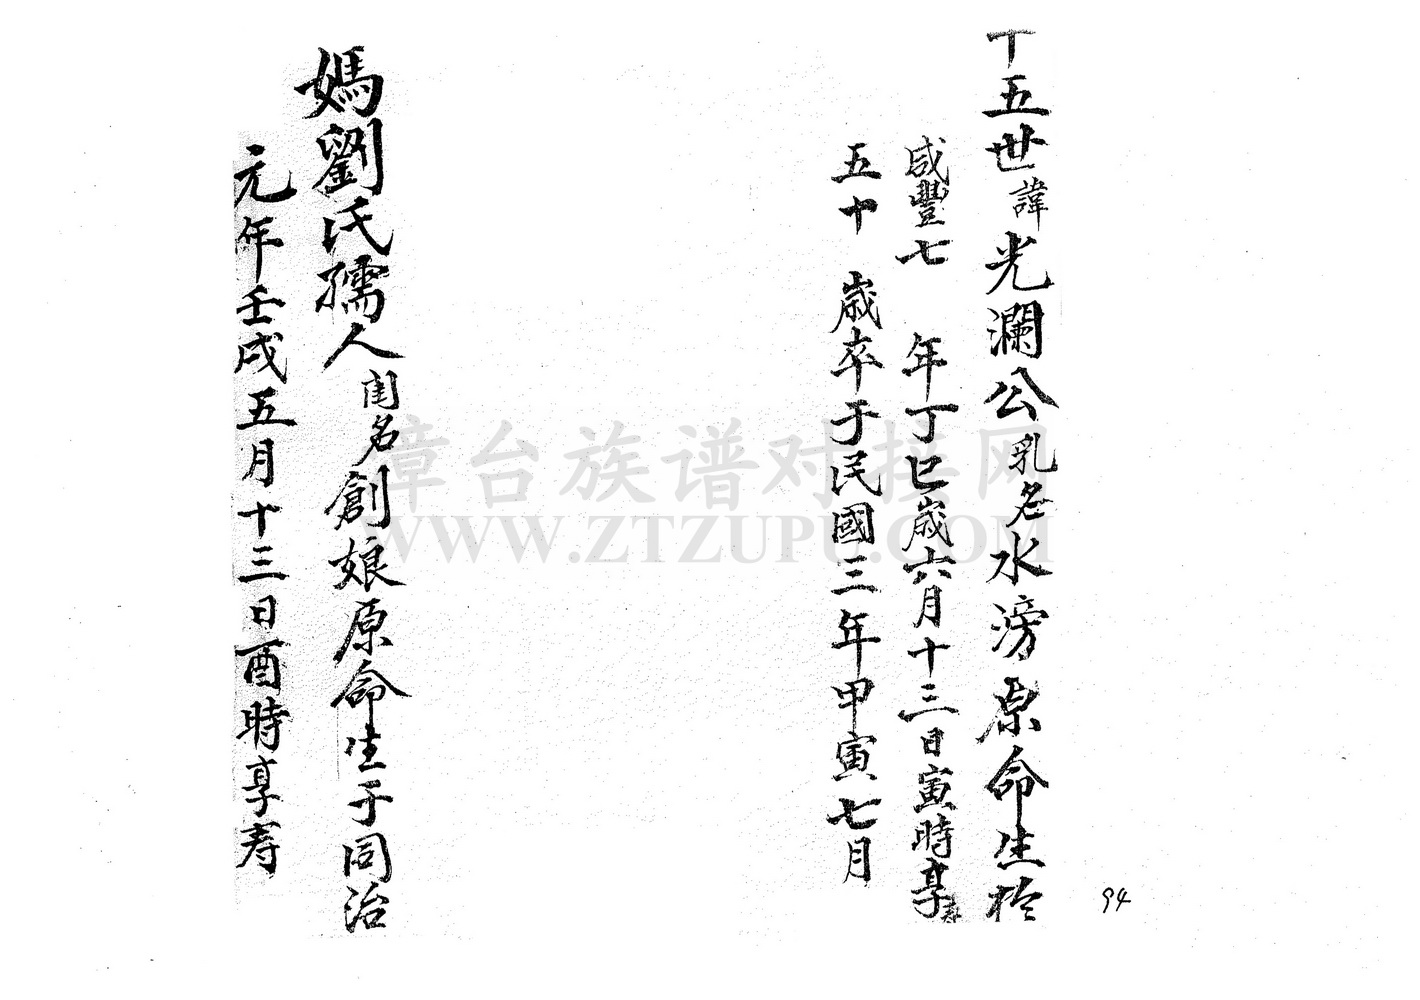 十五世諱光瀾公乳名水滂原命生於
咸豐七 年丁巳歲六月十三日寅時享壽
五十 歲卒于民國三年甲寅七月
媽劉氏孺人閨名創娘原命生于同治
元年壬戌五月十三日酉時享寿
94
章台族谱对接网
WWW.ZTZUPU.COM